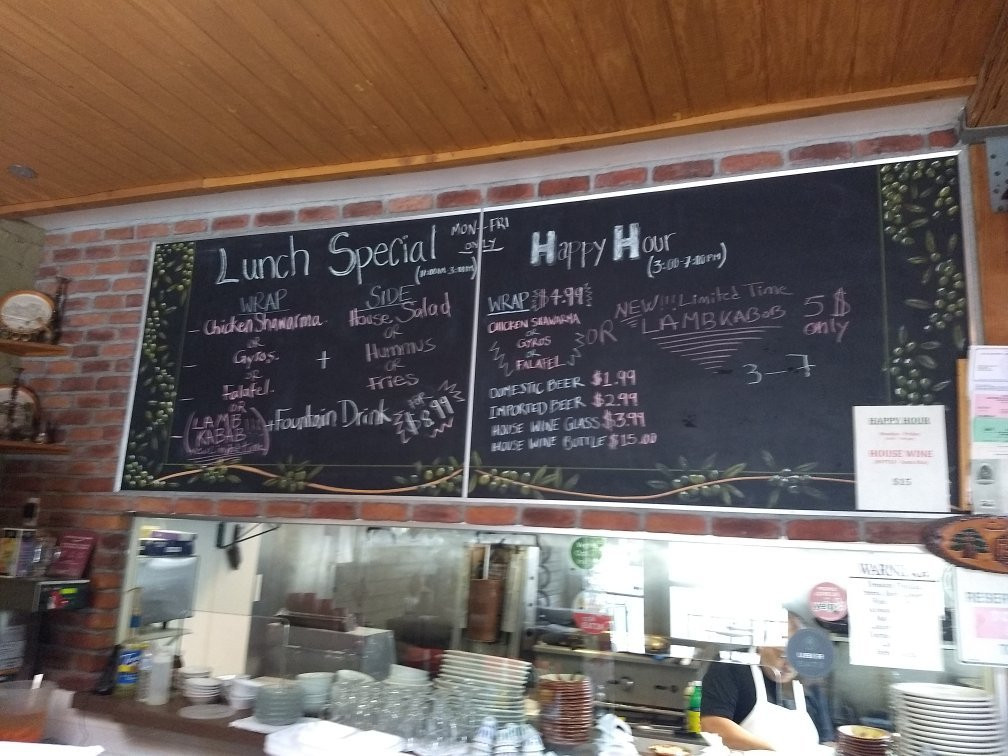 Lunch Special
MON-FRI
ONLY
WRAP
SIDE
- Chicken Shawarma
OR
- Gyros.
OR
- Falafel.
OR
- (LAMB
KABAB
+
House Salad
OR
Hummus
OR
Fries
+Fountain Drink
FOR
$8.99
Happy Hour
(3:00-7:00PM)
WRAP $4.99
CHICKEN SHAWARMA
OR
GYROS
OR
FALAFEL
OR
NEW!!! Limited Time
LAMB KABOB
5$
only
3-7
DOMESTIC BEER $1.99
IMPORTED BEER $2.99
HOUSE WINE GLASS $3.99
HOUSE WINE BOTTLE $15.00
HAPPY HOUR
HOUSE WINE
$15
yelp